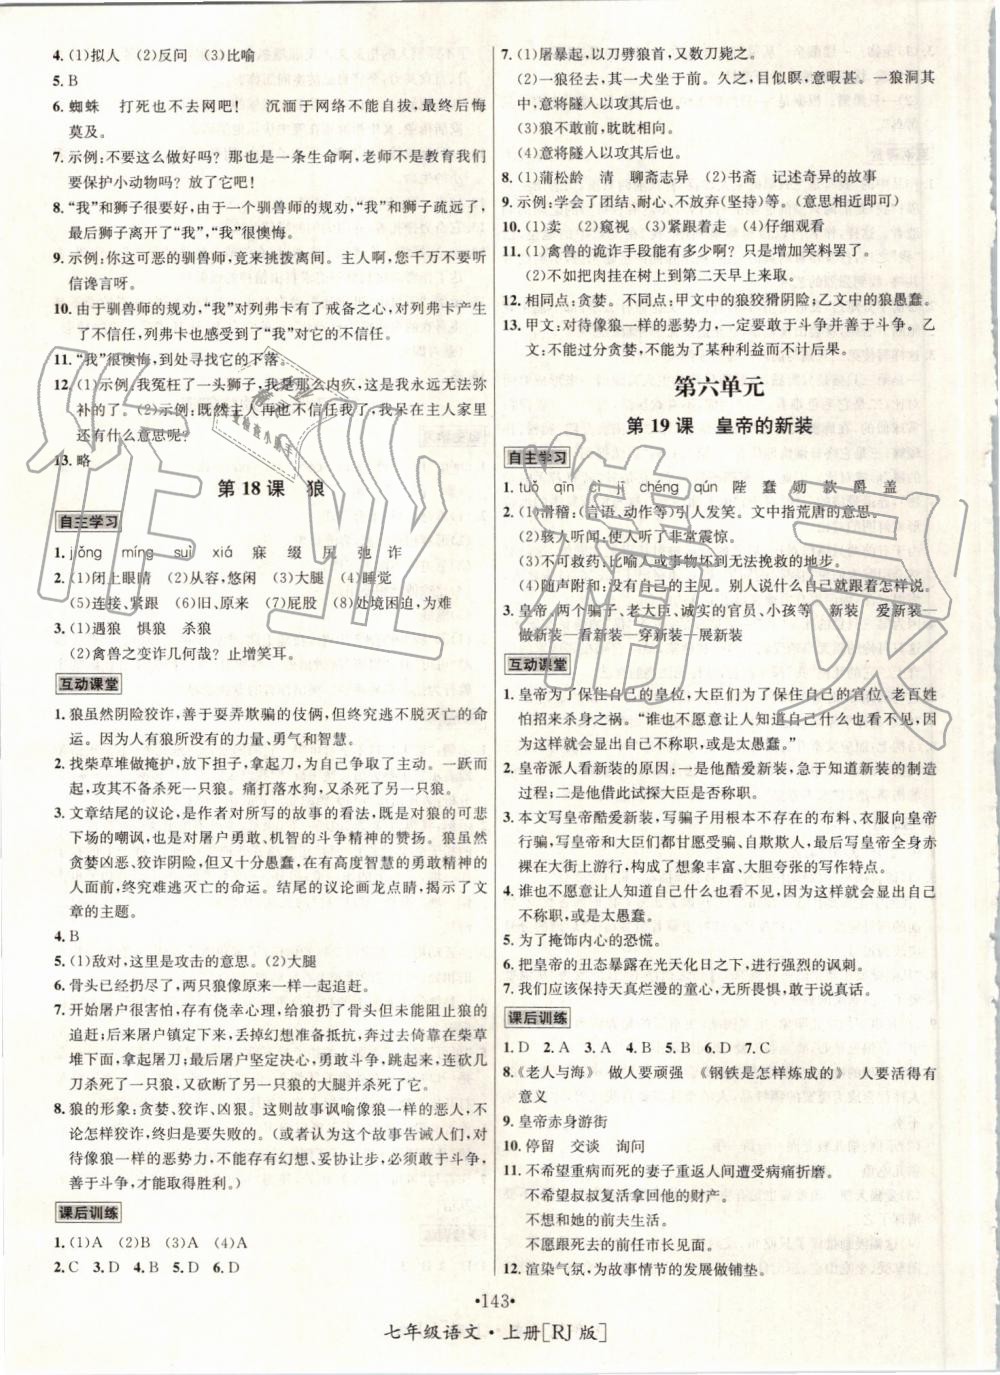 4. (1)拟人　(2)反问　(3)比喻
5. B
6. 蜘蛛　打死也不去网吧!　沉湎于网络不能自拔,最终后悔
莫及。
7. 示例:不要这么做好吗? 那也是一条生命啊,老师不是教育我们
要保护小动物吗? 放了它吧!
8. “我”和狮子很要好,由于一个驯兽师的规劝,“我”和狮子疏远了,
最后狮子离开了“我”,“我”很懊悔。
9. 示例:你这可恶的驯兽师,竟来挑拨离间。主人啊,您千万不要听
信谗言呀。
10. 由于驯兽师的规劝,“我”对列弗卡有了戒备之心,列弗卡产生
了不信任,列弗卡也感受到了“我”对它的不信任。
11. “我”很懊悔,到处寻找它的下落。
12. (1)示例:我冤枉了一头狮子,我是那么内疚,这是我永远无法弥
补的了。(2)示例:既然主人再也不信任我了,我呆在主人家里
还有什么意思呢?
13. 略
第18课　狼
自主学习
1. jiǒng　míng　suì　xiá　寐　缀　尻　弛　诈
2. (1)闭上眼睛　(2)从容,悠闲　(3)大腿　(4)睡觉
(5)连接、紧跟　(6)旧、原来　(7)屁股　(8)处境困迫,为难
3. (1)遇狼　惧狼　杀狼
(2)禽兽之变诈几何哉? 止增笑耳。
互动课堂
1. 狼虽然阴险狡诈,善于耍弄欺骗的伎俩,但终究逃不脱灭亡的命
运。因为人有狼所没有的力量、勇气和智慧。
2. 找柴草堆做掩护,放下担子,拿起刀,为自卫争取了主动。一跃而
起,攻其不备杀死一只狼。痛打落水狗,又杀死了另一只狼。
3. 文章结尾的议论,是作者对所写的故事的看法,既是对狼的可悲
下场的嘲讽,也是对屠户勇敢、机智的斗争精神的赞扬。狼虽然
贪婪凶恶、狡诈阴险,但又十分愚蠢,在有高度智慧的勇敢精神的
人面前,终究难逃灭亡的命运。结尾的议论画龙点睛,揭示了文
章的主题。
4. B
5. (1)敌对,这里是攻击的意思。(2)大腿
6. 骨头已经扔尽了,两只狼像原来一样一起追赶。
7. 开始屠户很害怕,存有侥幸心理,给狼扔了骨头但未能阻止狼的
追赶;后来屠户镇定下来,丢掉幻想准备抵抗,奔过去倚靠在柴草
堆下面,拿起屠刀;最后屠户坚定决心,勇敢斗争,跳起来,连砍几
刀杀死了一只狼,又砍断了另一只狼的大腿并杀死了它。
8. 狼的形象:贪婪、狡诈、凶狠。这则故事讽喻像狼一样的恶人,不
论怎样狡诈,终归是要失败的。(或者认为这个故事告诫人们,对
待像狼一样的恶势力,不能存有幻想、妥协让步,必须敢于斗争,
善于斗争,才能取得胜利。)
课后训练
1. (1)A　(2)B　(3)A　(4)A
2. C　3. D　4. B　5. D　6. D
7. (1)屠暴起,以刀劈狼首,又数刀毙之。
(2)一狼径去,其一犬坐于前。久之,目似瞑,意暇甚。一狼洞其
中,意将隧入以攻其后也。
(3)狼不敢前,眈眈相向。
(4)意将隧入以攻其后也。
8. (1)蒲松龄　清　聊斋志异　(2)书斋　记述奇异的故事
9. 示例:学会了团结、耐心、不放弃(坚持)等。(意思相近即可)
10. (1)卖　(2)窥视　(3)紧跟着走　(4)仔细观看
11. (1)禽兽的诡诈手段能有多少啊? 只是增加笑料罢了。
(2)不如把肉挂在树上到第二天早上来拿取。
12. 相同点:贪婪。不同点:甲文中的狼狡猾阴险;乙文中的狼愚蠢。
13. 甲文:对待像狼一样的恶势力,一定要敢于斗争并善于斗争。乙
文:不能过分贪婪,不能为了某种利益而不计后果。
第六单元
第19课　皇帝的新装
自主学习
1. tuǒ　qīn　cì　jī　chéng　qún　陛　蠢　妫　款　爵　盖
2. (1)滑稽:(言语、动作等)引人发笑。文中指荒唐的意思。
(2)骇人听闻:使人听了非常震惊。
(3)不可救药:比喻人或事物坏到无法挽救的地步。
(4)随声附和:没有自己的主见。别人说什么就跟着怎样说。
3. 皇帝、两个骗子、老大臣、诚实的官员、小孩等　新装　爱新装—
做新装—看新装—穿新装—展新装
互动课堂
1. 皇帝为了保住自己的皇位,大臣们为了保住自己的官位,老百姓
怕招来杀身之祸。“谁也不愿意让人知道自己什么也看不见,因
为这样就会显出自己不称职,或是太愚蠢。”
2. 皇帝派人看新装的原因:一是他酷爱新装,急于知道新装的制造
过程;二是他借此试探大臣是否称职。
3. 本文写皇帝酷爱新装,写骗子用根本不存在的布料、衣服向皇帝
行骗,写皇帝和大臣们都甘愿受骗、自欺欺人,最后写皇帝全身赤
裸在大街上游行,构成了想象丰富、大胆夸张的写作特点。
4. 谁也不愿意让人知道自己什么也看不见,因为这样就会显出自己
不称职,或是太愚蠢。
5. 为了掩饰内心的恐慌。
6. 把皇帝的丑态暴露在光天化日之下,进行强烈的讽刺。
7. 我们应该保持天真烂漫的童心,无所畏惧,敢于说真话。
课后训练
1. D　2. A　3. A　4. B　5. B　6. D　7. C
8. 《老人与海》　做人要顽强　《钢铁是怎样炼成的》　人要活得有
意义
9. 皇帝赤身游街
10. 停留　交谈　询问
11. 不希望重病而死的妻子重返人间遭受病痛折磨。
不希望叔叔复活拿回他的财产。
不想和她的前夫生活。
不愿跟死去的前任市长见面。
12. 渲染气氛,为故事情节的发展做铺垫。
•143•
七年级语文·上册[RJ版]
作业精灵